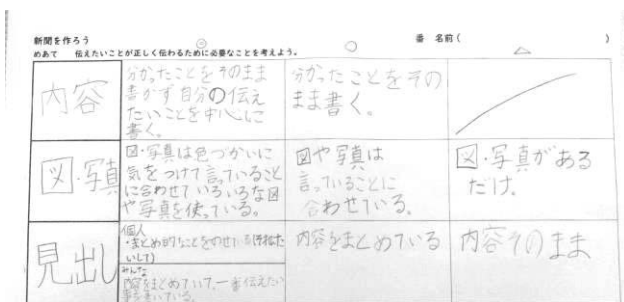 新聞を作ろう
番 名前( )
めあて 伝えたいことが正しく伝わるために必要なことを考えよう。
◎ ○ △
内容
分かったことをそのまま
書かず自分の伝え
たいことを中心に
書く。
分かったことをその
まま書く。
図・写真
図・写真は色づかいに
気をつけて言っていること
に合わせていろいろな図
や写真を使っている。
図や写真は
言っていることに
合わせている。
図・写真がある
だけ。
見出し
個人
・まとめ的なことをのせている
いして)
みんな
内容をまとめていて、一番伝えたい
事を書いている。
内容をまとめている
内容そのまま